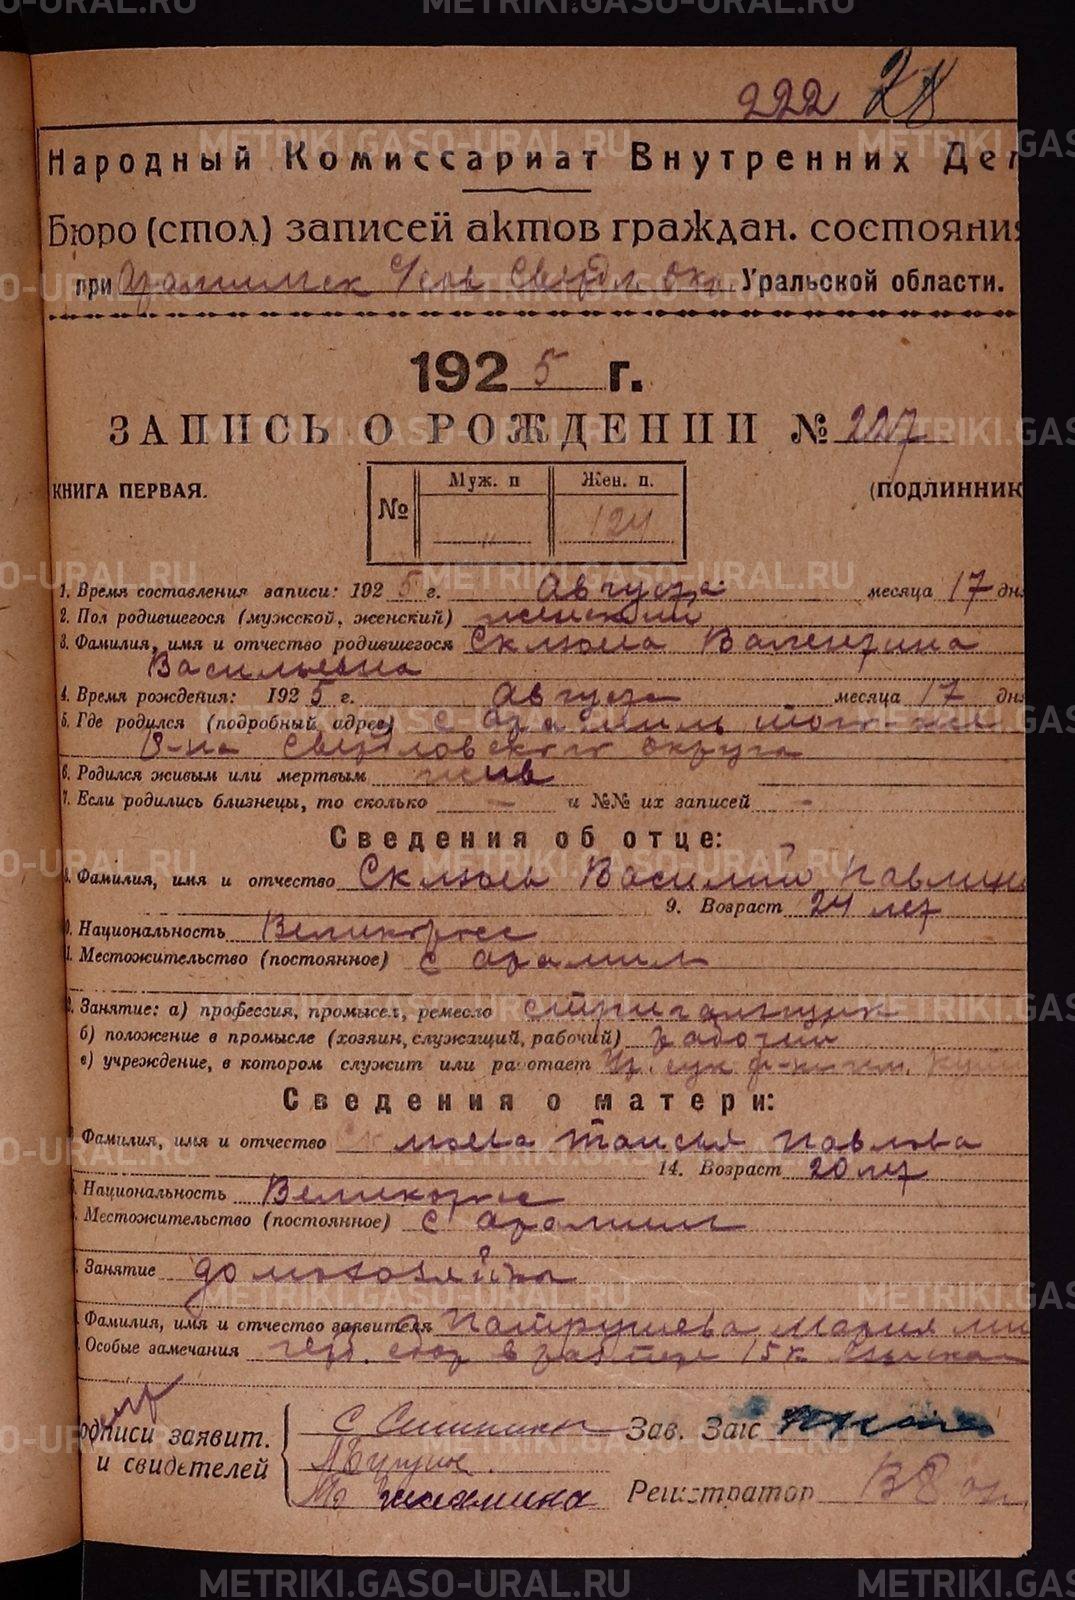 222 28
Народный Комиссариат Внутренних Дел
Бюро (стол) записей актов граждан. состояния
при Свердл. окр. Уральской области.
1925 г.
ЗАПИСЬ О РОЖДЕНИИ № 227
КНИГА ПЕРВАЯ. (ПОДЛИННИК
№ Муж. п Жен. п.
" 124
1. Время составления записи: 1925 г. Августа месяца 17 дня
2. Пол родившегося (мужской, женский) женский
3. Фамилия, имя и отчество родившегося Валентина
Васильевна
4. Время рождения: 1925 г. Августа месяца 17 дня
5. Где родился (подробный адрес) с Арамиль того же
р-на Свердловского округа
6. Родился живым или мертвым жив
7. Если родились близнецы, то сколько — и №№ их записей -
Сведения об отце:
8. Фамилия, имя и отчество Василий Павлин
9. Возраст 24 лет
0. Национальность Великоросс
1. Местожительство (постоянное) с Арамил
2. Занятие: а) профессия, промысел, ремесло стригальщик
б) положение в промысле (хозяин, служащий, рабочий) рабочий
в) учреждение, в котором служит или работает
Сведения о матери:
Фамилия, имя и отчество Таисья Павлова
14. Возраст 20 лет
Национальность Великоросс
Местожительство (постоянное) с Арамил
Занятие домохозяйка
Фамилия, имя и отчество заявителя Патрушева Мария Ми
Особые замечания герб. сбор 15 к.
одписи заявит.
и свидетелей
Зав. Загс
Регистратор
METRIKI.GASO-URAL.RU